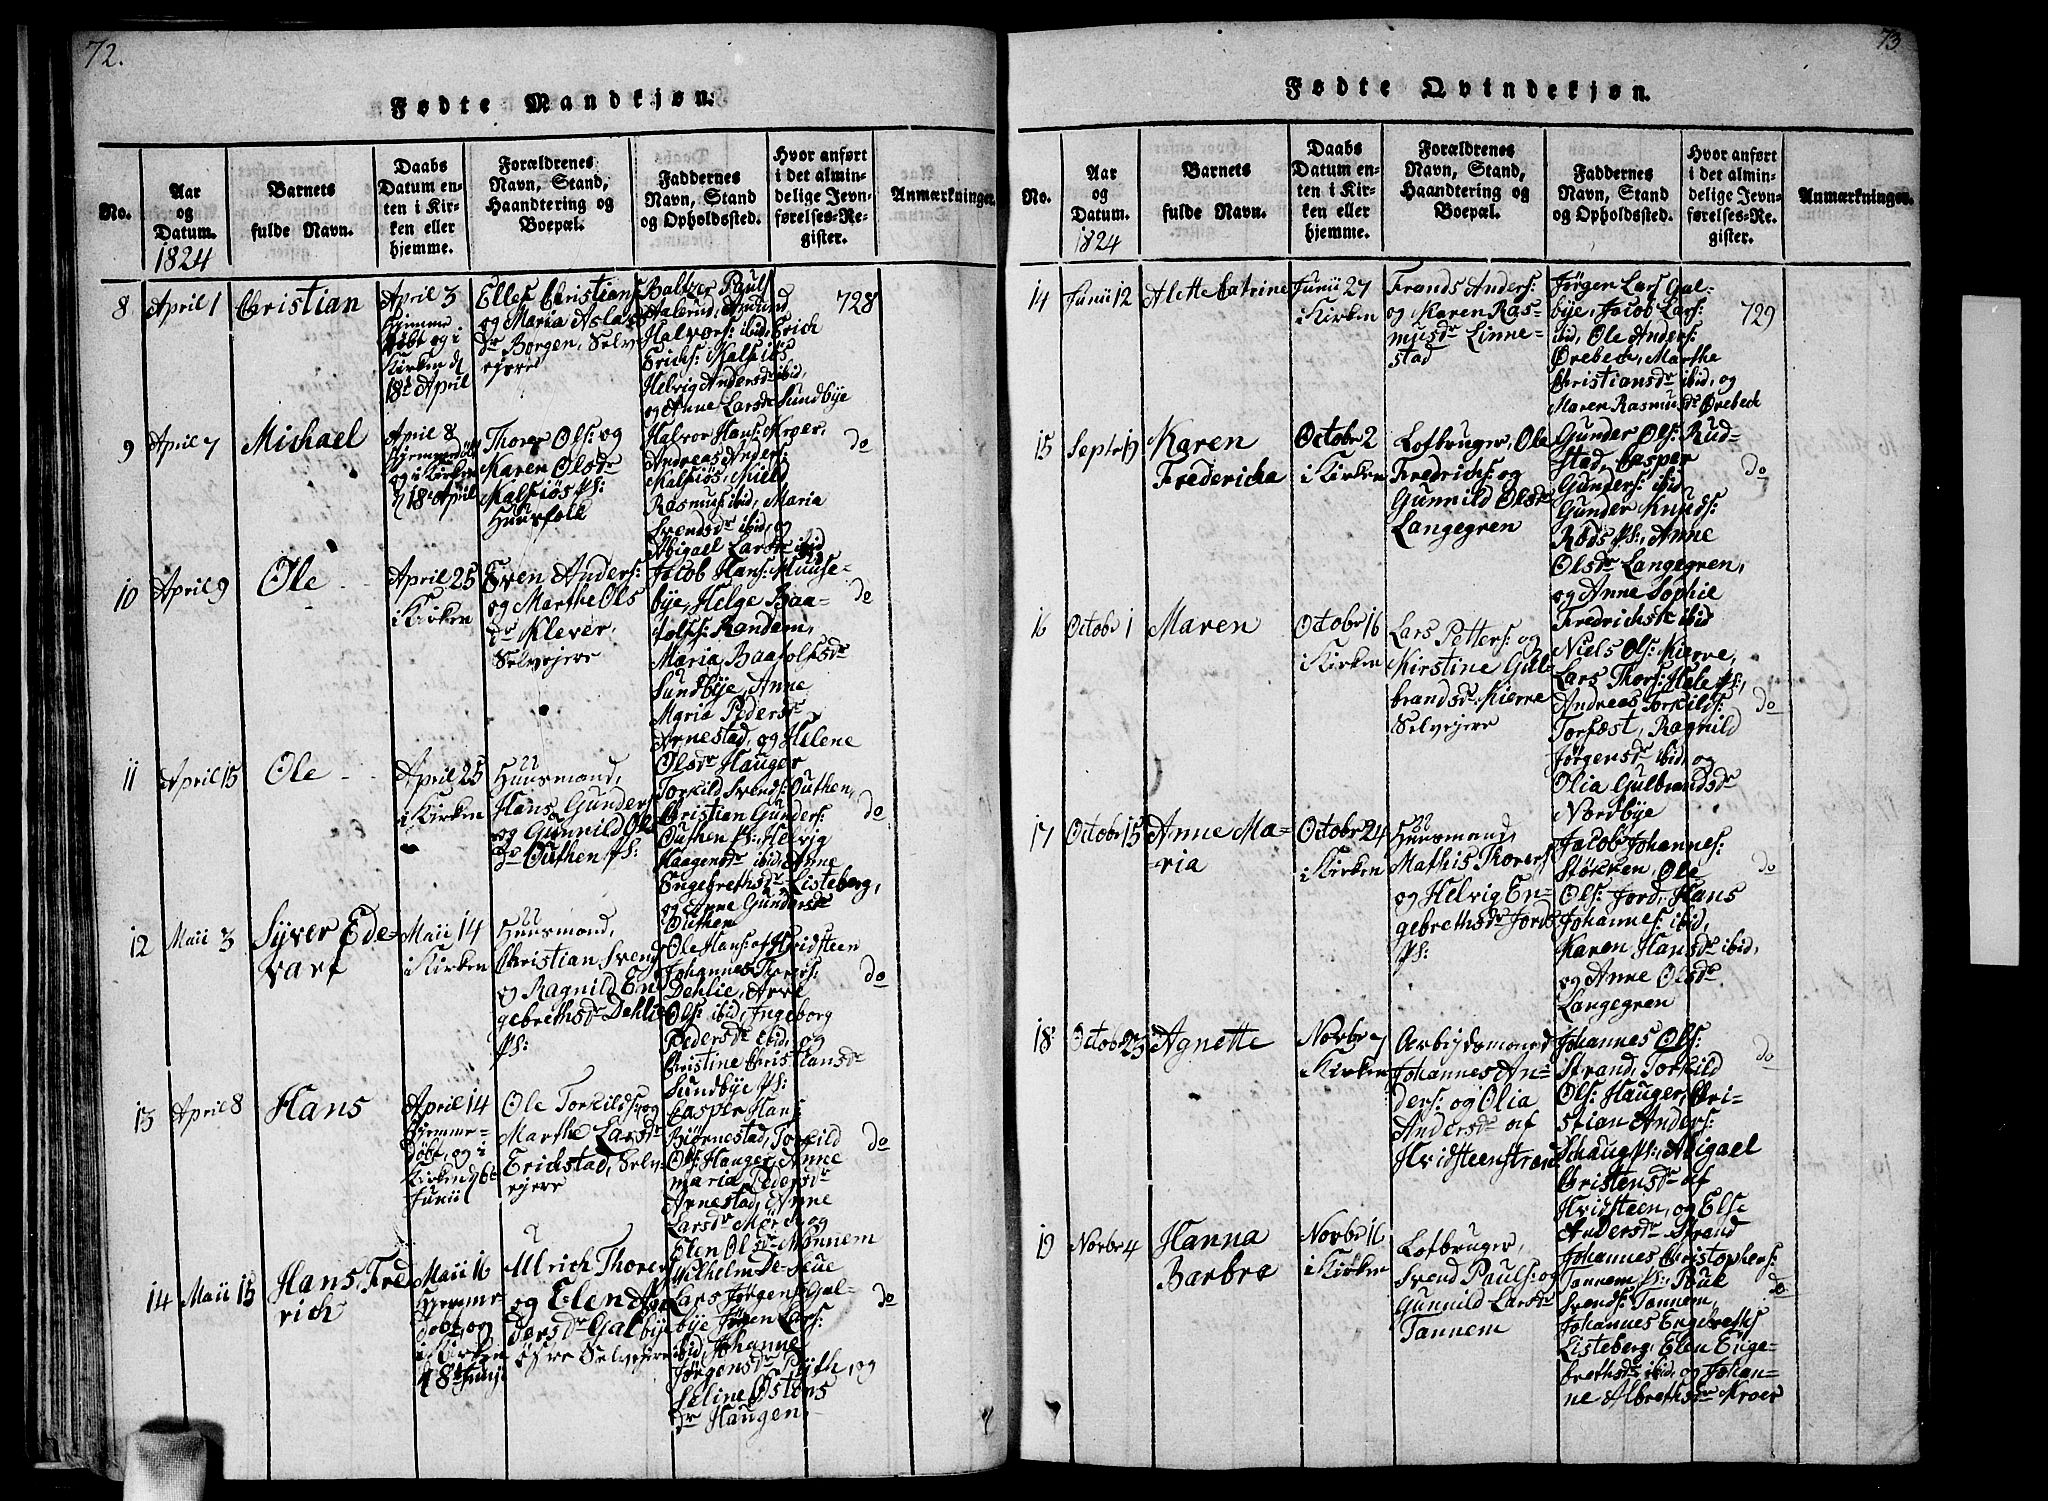 72.
Fødte Mandkjøn.
No.
Aar
og
Datum.
1824
Barnets
fulde Navn.
Daabs
Datum en-
ten i Kir-
ken eller
hjemme.
Forældrenes
Navn, Stand,
Haandtering og
Boepæl.
Faddernes
Navn, Stand
og Opholdssted.
Hvor anført
i det almin-
delige Jevn-
førelses-Re-
gister.
Anmærkninger.
8
April 1
Christian
April 3
Hjemme
døbt og i
Kirken d
18de April
Ellef Christians
og Maria Aslas
Dr Borgen, Selv-
ejere
Baltzer Pauls
Aalerud, Amund
Halvors: ibid, Erich
Erichs: Kalsiøs
Helvig Andersdr ibid,
og Anne Larsdr Sundbye
728
9
April 7
Michael
April 8
Hjemmedøbt
og i Kirken
d 18de April
Thorer Ols: og
Karen Olsdr
Kalsiøs Ps:
Huusfolk
Halvor Hans: Kroer,
Andreas Anders:
Kalsiøs, Niels
Rasmus: ibid, Maria
Svendsdr ibid, og
Abigael Larsdr ibid
do
10
April 9
Ole
April 25
i Kirken
Sven Anders:
og Marthe Ols
Dr Klever,
Selvejere
Jacob Hans: Muuse-
bye, Helge Baa-
tolfs: Randem,
Maria Baatolfsdr
Sundbye, Anne
Maria Pedersdr
Arnestad, og Helene
Olsdr Hauger
do
11
April 15
Ole
April 25
i Kirken
Huusmand,
Hans Gunders
og Gunnild Ols
Dr Outhen Ps:
Torkild Svends: Outhen,
Christian Gunders:
Outhen Ps: Helvig
Haagensdr ibid, Anne
Engebrethsdr Listeberg,
og Anne Gundersdr
Outhen
do
12
Maii 3
Syver Ede-
vart
Maii 14
i Kirken
Huusmand,
Christian Svends
og Ragnild En
gebrethsdr Dehlie
Ps:
Ole Hans: af Hvidsteen
Johannes Thorers:
Dehlie, Arve
Ols: ibid, Ingeborg
Pedersdr ibid, og
Christine Christiansdr
Sundbye Ps:
do
13
April 8
Hans
April 14
Hjemme-
døbt, og i
Kirken d 6te
Junii
Ole Torkilds: og
Marthe Larsdr
Erichstad, Selv-
ejere
Casper Hans:
Biørnestad, Torkild
Ols: Hauger, Anne
maria Pedersdr
Arnestad, Anne
Larsdr Mørch og
Elen Olsdr Monnem
do
14
Maii 15
Hans, Fred
rich
Maii 16
Hjemme-
døbt, og
i Kirken
d 8de Junii
Ulrich Thorers
og Elen An
dersdr Galbye
østre Selvejere
Wilhelm De-Seue
Lars Jørgens: Gal-
bye Jørgen Lars:
ibid, Johanne
Jørgensdr Pythe, og
Seline Østens
Dr Haugen,
do
73
Fødte Qvindekjøn.
No.
Aar
og
Datum.
1824
Barnets
fulde Navn.
Daabs
Datum en-
ten i Kir-
ken eller
hjemme.
Forældrenes
Navn, Stand,
Haandtering og
Boepæl.
Faddernes
Navn, Stand
og Opholdssted.
Hvor anført
i det almin-
delige Jevn-
førelses-Re-
gister.
Anmærkninger.
14
Junii 12
Alette Catrine
Junii 27
i Kirken
Frands Anders:
og Karen Ras-
musdr Linne-
stad
Jørgen Lars: Gal-
bye, Jacob Lars:
ibid, Ole Anders:
Ørebeck, Marthe
Christiansdr ibid, og
Maren Rasmusdr Ørebeck
729
15
Septbr 19
Karen
Fredericke
Octobr 2
i Kirken
Lotbruger, Ole
Fredrichs: og
Gunnild Olsdr
Langegren
Gunder Ols: Rud-
stad, Casper
Gunders: ibid
Gunder Knuds:
Røds Ps:, Anne
Olsdr Langegren,
og Anne Sophie
Fredrichsdr ibid
do
16
Octobr 1
Maren
Octobr 16
i Kirken
Lars Petters: og
Kirstine Gul-
brandsdr Kierre
Selvejere
Niels Ols: Kierre,
Lars Thors: Hele Ps:,
Andreas Torkilds:
Torfæst, Ragnild
Jørgensdr ibid, og
Olia Gulbrandsdr
Nordbye
do
17
Octobr 15
Anne Ma-
ria
Octobr 24
i Kirken
Huusmand,
Mathis Thorers
og Helvig En-
gebrethsdr Jords
Ps:
Jacob Johannes:
Støkken, Ole
Ols: Jord, Hans
Johannes: ibid,
Karen Hansdr ibid,
og Anne Olsdr
Langegren
do
18
Octobr 23
Agnette
Novbr 7
i Kirken
Arbejdsmand
Johannes An-
ders: og Olia
Andersdr af
Hvidsteenstrand
Johannes Ols:
Strand, Torkild
Ols: Hauger, Chri-
stian Anders:
Schaug Ps:, Abigael
Christensdr af
Hvidsteen, og Else
Andersdr Strand
do
19
Novbr 4
Hanna
Barbra
Novbr 16
i Kirken
Lotbruger,
Svend Pauls: og
Gunnild Larsdr
Tannem
Johannes Christophers:
Tannem Ps:, Pouk
Svends: Tannem,
Johannes Engebreths
Listeberg, Elen Enge-
brethsdr ibid, og Johan-
ne Albrethsdr Kroer
do